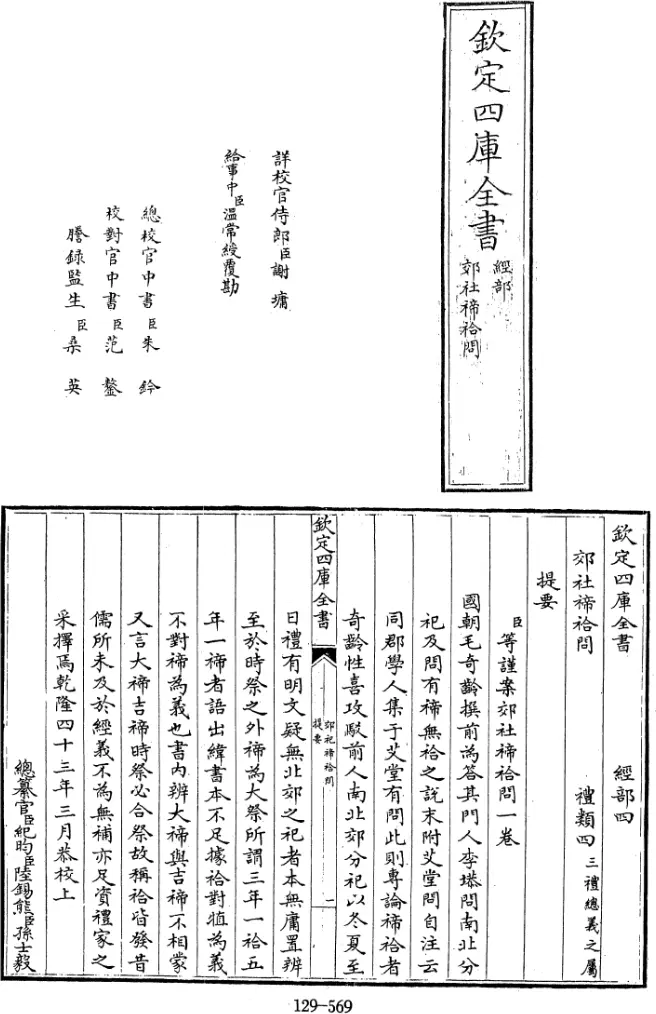 欽定四庫全書
經部
郊社禘祫問
詳校官侍郎臣謝墉
給事中臣溫常綬覆勘
總校官中書臣朱鈐
校對官中書臣范鏊
謄錄監生臣桑英
欽定四庫全書 經部四
郊社禘祫問 禮類四三禮總義之屬
提要
臣等謹案郊社禘祫問一卷
國朝毛奇齡撰前為答其門人李塨問南北分
祀及問有禘無祫之說末附艾堂問自注云
同郡學人集于艾堂有問此則專論禘祫者
奇齡性喜攻駁前人南北郊分祀以冬夏至
欽定四庫全書
郊祀禘祫問
提要
一
日禮有明文疑無北郊之祀者本無庸置辨
至於時祭之外禘為大祭所謂三年一祫五
年一禘者語出緯書本不足據祫對犆為義
不對禘為義也書內辨大禘與吉禘不相蒙
又言大禘吉禘時祭必合祭故稱祫皆發昔
儒所未及於經義不為無補亦足資禮家之
采擇焉乾隆四十三年三月恭校上
總纂官臣紀昀臣陸錫熊臣孫士毅
129-569